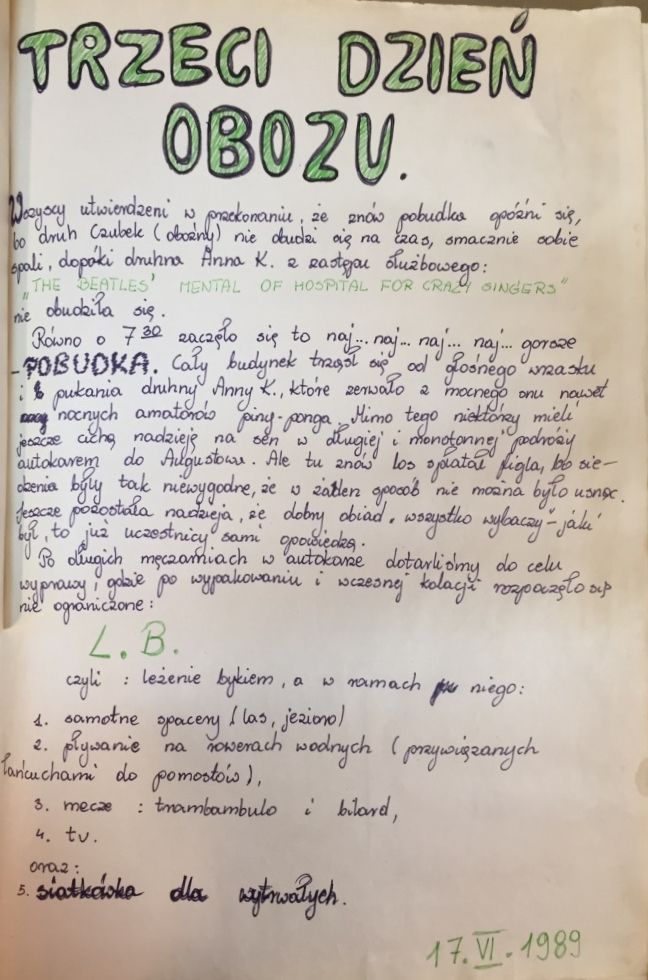 TRZECI DZIEŃ
OBOZU.
Wszyscy utwierdzeni w przekonaniu, że znów pobudka opóźni się,
bo druh Czubek (oboźny) nie obudzi się na czas, smacznie sobie
spali, dopóki druhna Anna K. z zastępu służbowego:
"THE BEATLES' MENTAL OF HOSPITAL FOR CRAZY SINGERS"
nie obudziła się.
Równo o 7 30 zaczęło się to naj... naj... naj... naj... gorsze
- POBUDKA. Cały budynek trząsł się od głośnego wrzasku
i pukania druhny Anny K., które zerwało z mocnego snu nawet
nocnych amatorów ping-ponga. Mimo tego niektórzy mieli
jeszcze cichą nadzieję na sen w długiej i monotonnej podróży
autokarem do Augustowa. Ale tu znów los spłatał figla, bo sie-
dzenia były tak niewygodne, że w żaden sposób nie można było usnąć.
Jeszcze pozostała nadzieja, że dobry obiad "wszystko wybaczy" - jaki
był, to już uczestnicy sami opowiedzą.
Po długich męczarniach w autokarze dotarliśmy do celu
wyprawy, gdzie po wypakowaniu i wczesnej kolacji rozpoczęło się
nie ograniczone:
L. B.
czyli : leżenie bykiem, a w ramach niego:
1. samotne spacery (las, jezioro)
2. pływanie na rowerach wodnych (przywiązanych
łańcuchami do pomostów),
3. mecze : trambambulo i bilard,
4. tv.
oraz:
5. siatkówka dla wytrwałych.
17. VI. 1989